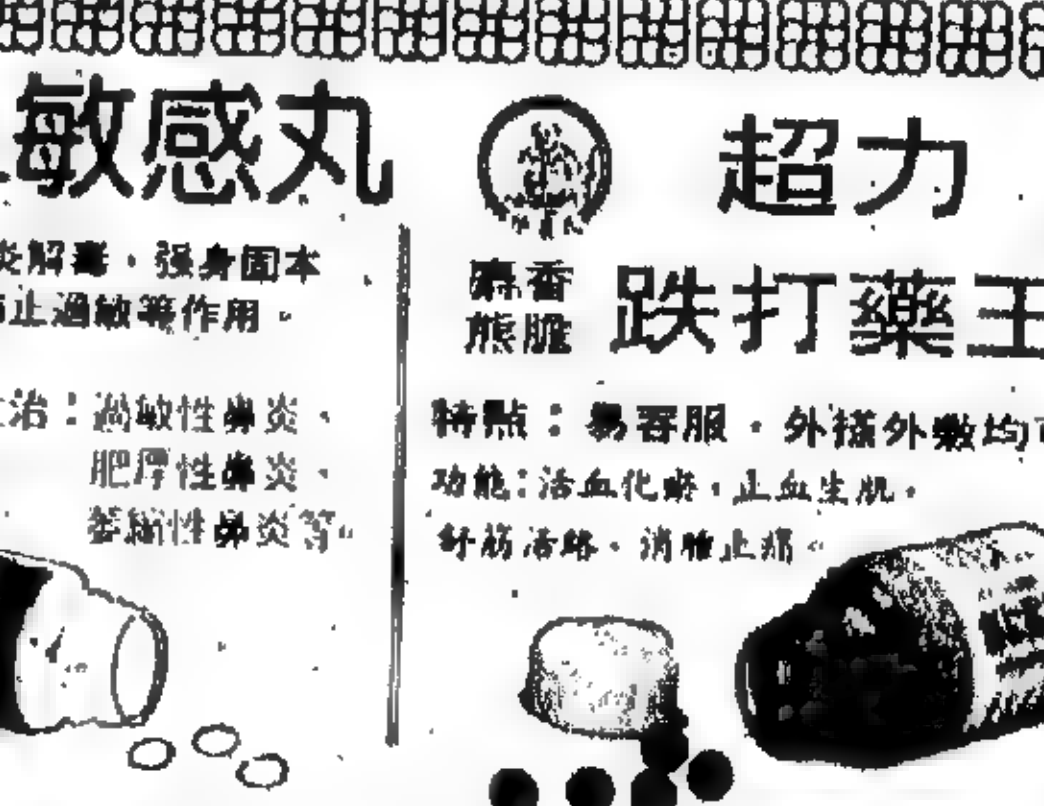 敏感丸
炎解毒，强身固本
止過敏等作用。
治：過敏性鼻炎、
肥厚性鼻炎、
萎縮性鼻炎等。
超力
麝香
熊膽
跌打藥王
特點：易吞服，外搽外敷均可
功能：活血化瘀，止血生肌，
舒筋活絡，消腫止痛。